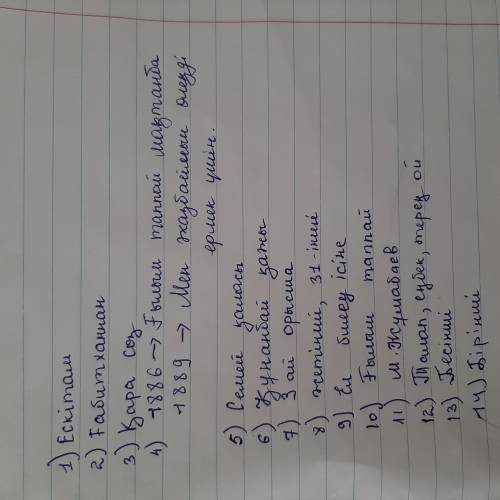 1) Ескітам
2) Ғабитханнан
3) Қара сөз
4) 1886 → Ғылым таппай мақтанба
1889 → Мен жазбаймын өлеңді
ермек үшін.
5) Семей қаласы
6) Құнанбай қажы
7) 3 ай орысша
8) жетінші, 31-інші
9) Ел билеу ісіне
10) Ғылым таппай
11) М. Жұмабаев
12) Талап, еңбек, терең ой
13) Бесінші
14) Бірінші